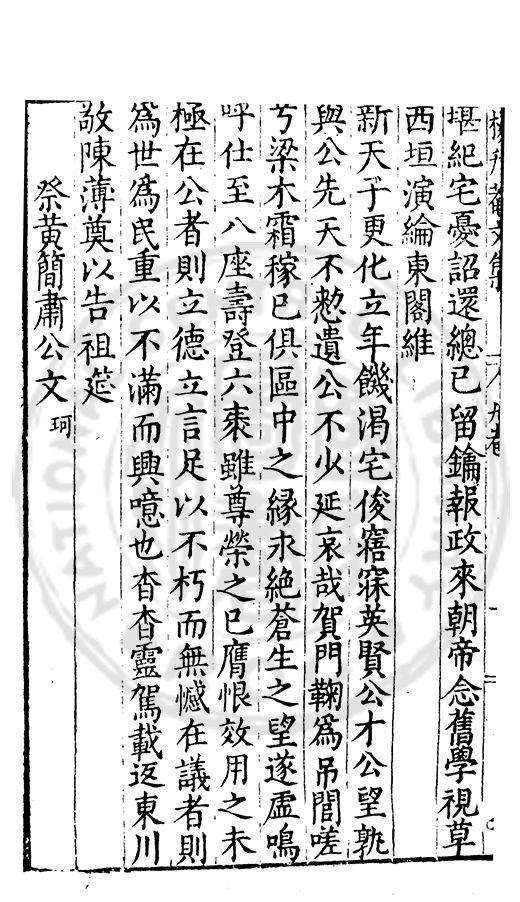 堪紀宅憂詔還總已留鑰報政來朝帝念舊學視草
西垣演綸東閣維
新天子更化立年饑渴宅俊寤寐英賢公才公望孰
與公先天不憗遺公不少延哀哉賀門鞠爲吊閭嗟
兮梁木霜稼已俱區中之緣永絶蒼生之望遂虛嗚
呼仕至八座壽登六袠雖尊榮之已膺恨效用之未
極在公者則立德立言足以不朽而無憾在議者則
爲世爲民重以不滿而興噫也杳杳靈駕載返東川
敬陳薄奠以告祖筵
祭黄簡肅公文 珂